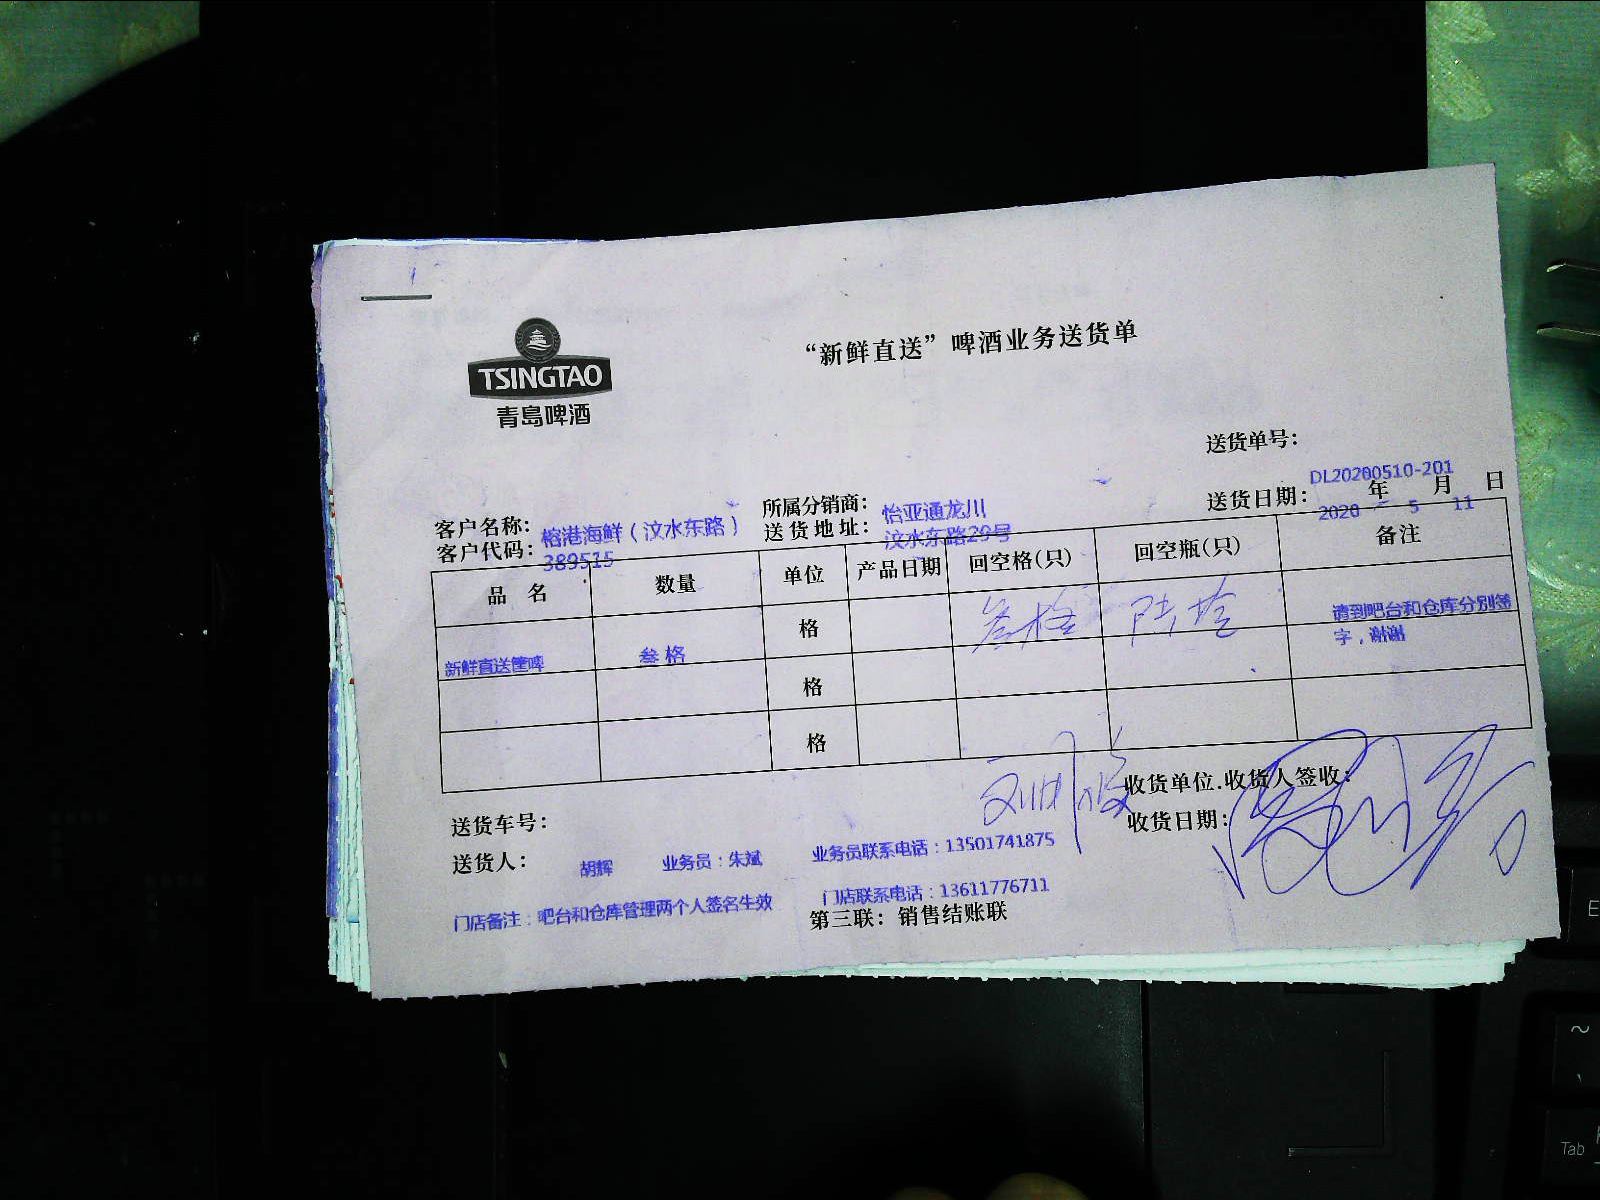 TSINGTAO
青島啤酒
“新鲜直送”啤酒业务送货单
送货单号：
DL20200510-201
送货日期： 年 月 日
2020 5 11
客户名称： 榕港海鲜（汶水东路）
所属分销商： 怡亚通龙川
客户代码： 389515
送货地址： 汶水东路29号
品 名 数量 单位 产品日期 回空格(只) 回空瓶(只) 备注
新鲜直送筐啤 叁格 格 叁格 请到吧台和仓库分别签字，谢谢
格
格
送货车号：
收货单位.收货人签收：
收货日期：
送货人： 胡辉 业务员：朱斌 业务员联系电话：13501741875
门店备注：吧台和仓库管理两个人签名生效 门店联系电话：13611776711
第三联：销售结账联
Tab